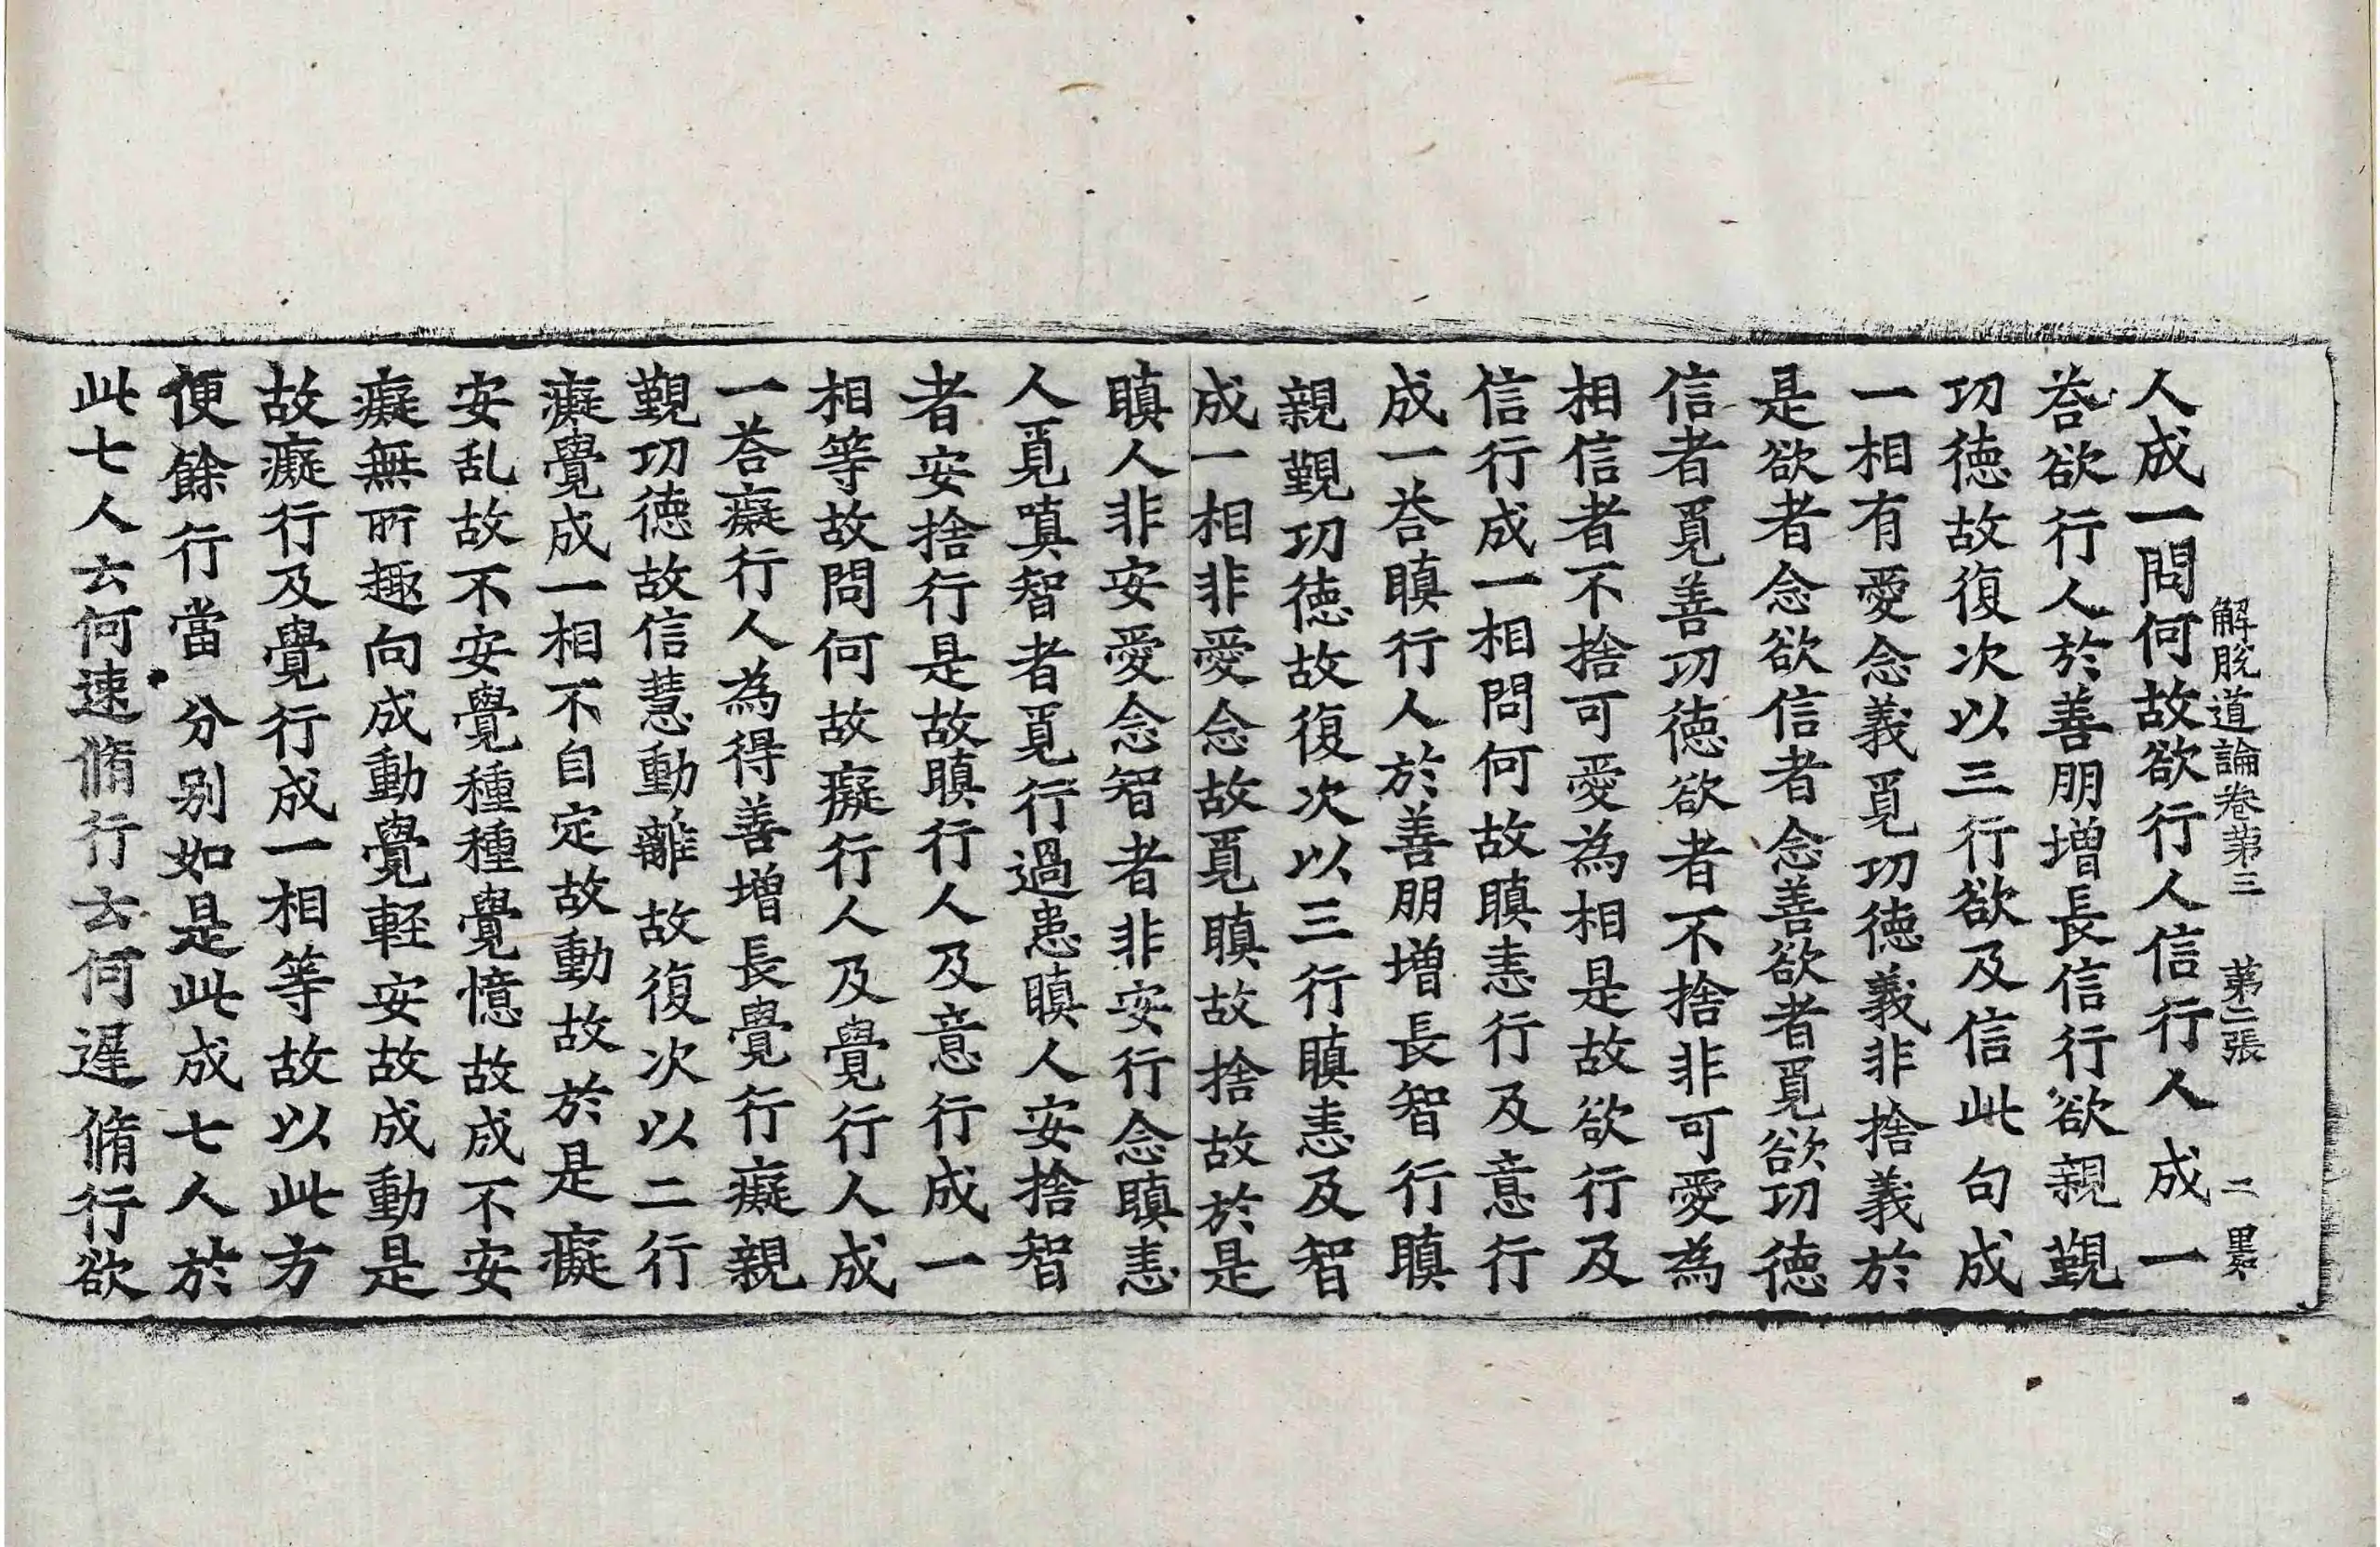 解脫道論卷第三 第二張 二 墨
人成一問何故欲行人信行人成一
荅欲行人於善朋增長信行欲親覲
功徳故復次以三行欲及信此句成
一相有愛念義覓功徳義非捨義於
是欲者念欲信者念善欲者覓欲功徳
信者覓善功徳欲者不捨非可愛為
相信者不捨可愛為相是故欲行及
信行成一相問何故瞋恚行及意行
成一荅瞋行人於善朋增長智行瞋
親覲功徳故復次以三行瞋恚及智
成一相非愛念故覓瞋故捨故於是
瞋人非安愛念智者非安行念瞋恚
人覓嗔智者覓行過患瞋人安捨智
者安捨行是故瞋行人及意行成一
相等故問何故癡行人及覺行人成
一荅癡行人為得善增長覺行癡親
覲功徳故信慧動離故復次以二行
癡覺成一相不自定故動故於是癡
安乱故不安覺種種覺憶故成不安
癡無所趣向成動覺輕安故成動是
故癡行及覺行成一相等故以此方
便餘行當分别如是此成七人於
此七人云何速脩行云何遲脩行欲